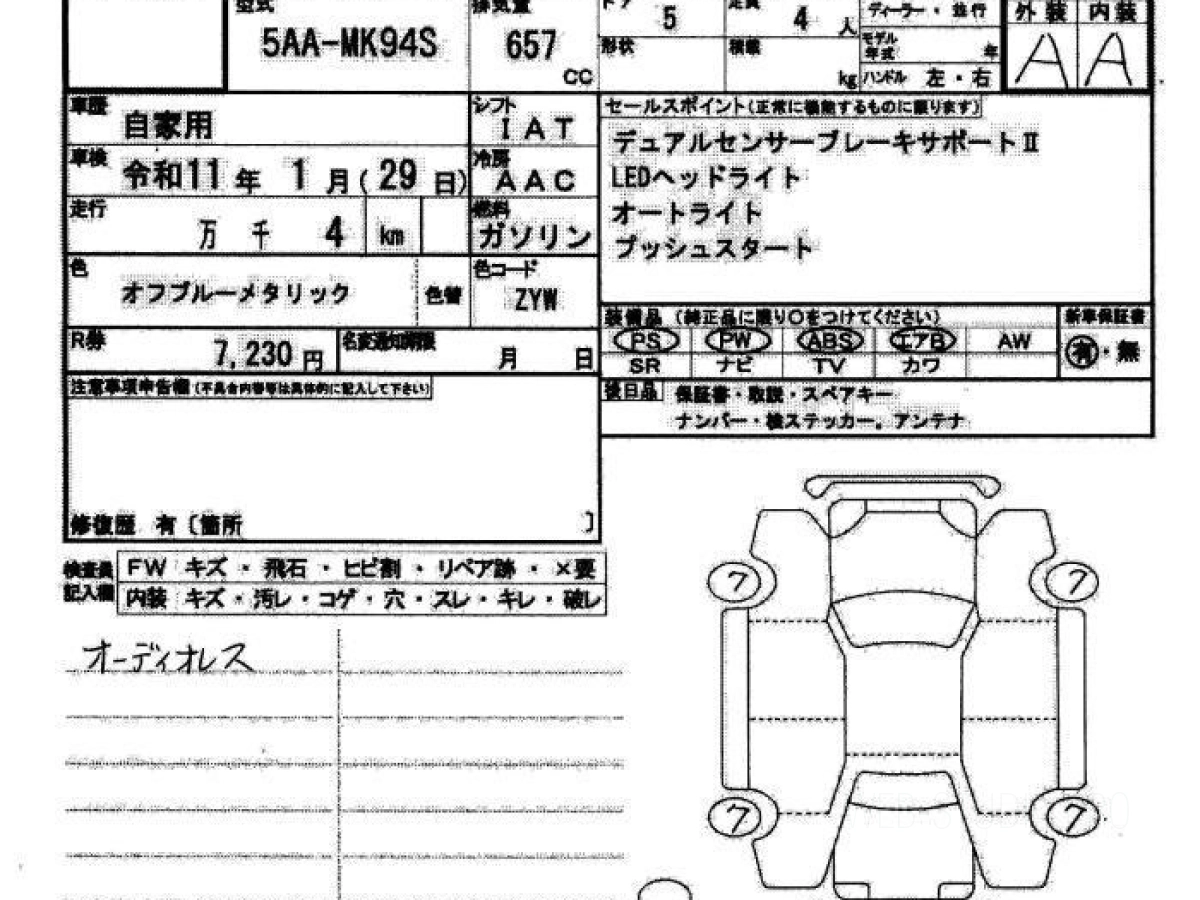 型式 排気量 ドア 定員 ディーラー・並行 外装 内装
5AA-MK94S 657 CC 5 4 人 A A
形状 積載 kg モデル年式 年
ハンドル 左・右
車歴 自家用 シフト IAT
セールスポイント(正常に機能するものに限ります)
デュアルセンサーブレーキサポートⅡ
車検 令和11年 1月(29日) 冷房 AAC
LEDヘッドライト
走行 万 千 4 km 燃料 ガソリン
オートライト
プッシュスタート
色 オフブルーメタリック 色替 色コード ZYW
装備品(純正品に限り○をつけてください) 新車保証書
R券 7,230円 名変通知期限 月 日
PS PW ABS エアB AW 有・無
SR ナビ TV カワ
注意事項申告欄(不具合内容等は具体的に記入して下さい)
後日品 保証書・取説・スペアキー
ナンバー・検ステッカー。アンテナ
修復歴 有〔箇所 〕
検査員記入欄
FW キズ・飛石・ヒビ割・リペア跡・×要
内装 キズ・汚レ・コゲ・穴・スレ・キレ・破レ
オーディオレス
7 7
7 7